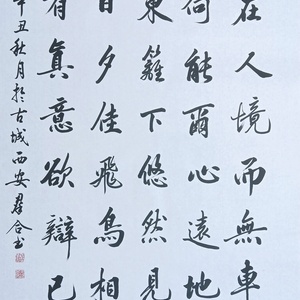 在人境而無車
何能爾心遠地
東籬下悠然見
日夕佳飛鳥相
有真意欲辯已
辛丑秋月於古城西安群合书